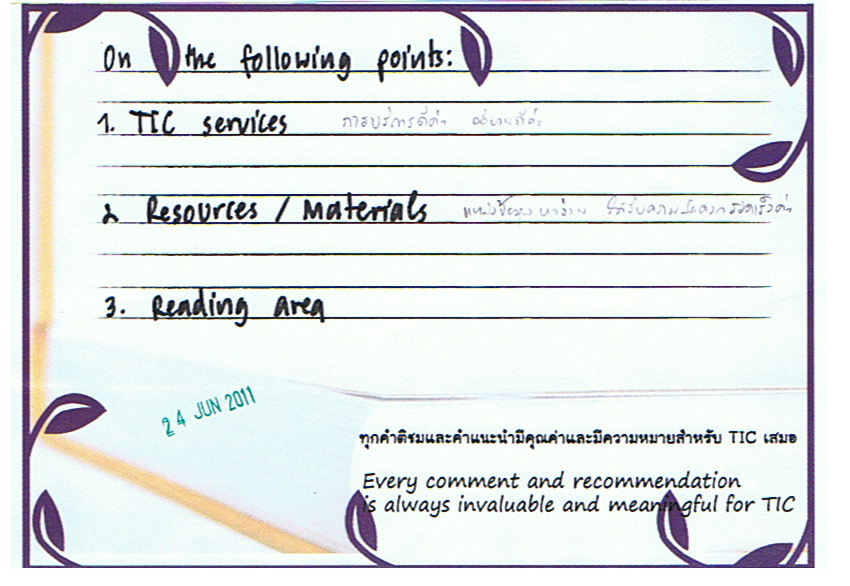 On the following points:
1. TIC services การบริการดีค่ะ อธิบายดีค่ะ
2 Resources / Materials แหล่งข้อมูลหาง่าย ได้รับความสะดวกรวดเร็วค่ะ
3. Reading area
24 JUN 2011
ทุกคำติชมและคำแนะนำมีคุณค่าและมีความหมายสำหรับ TIC เสมอ
Every comment and recommendation
is always invaluable and meaningful for TIC